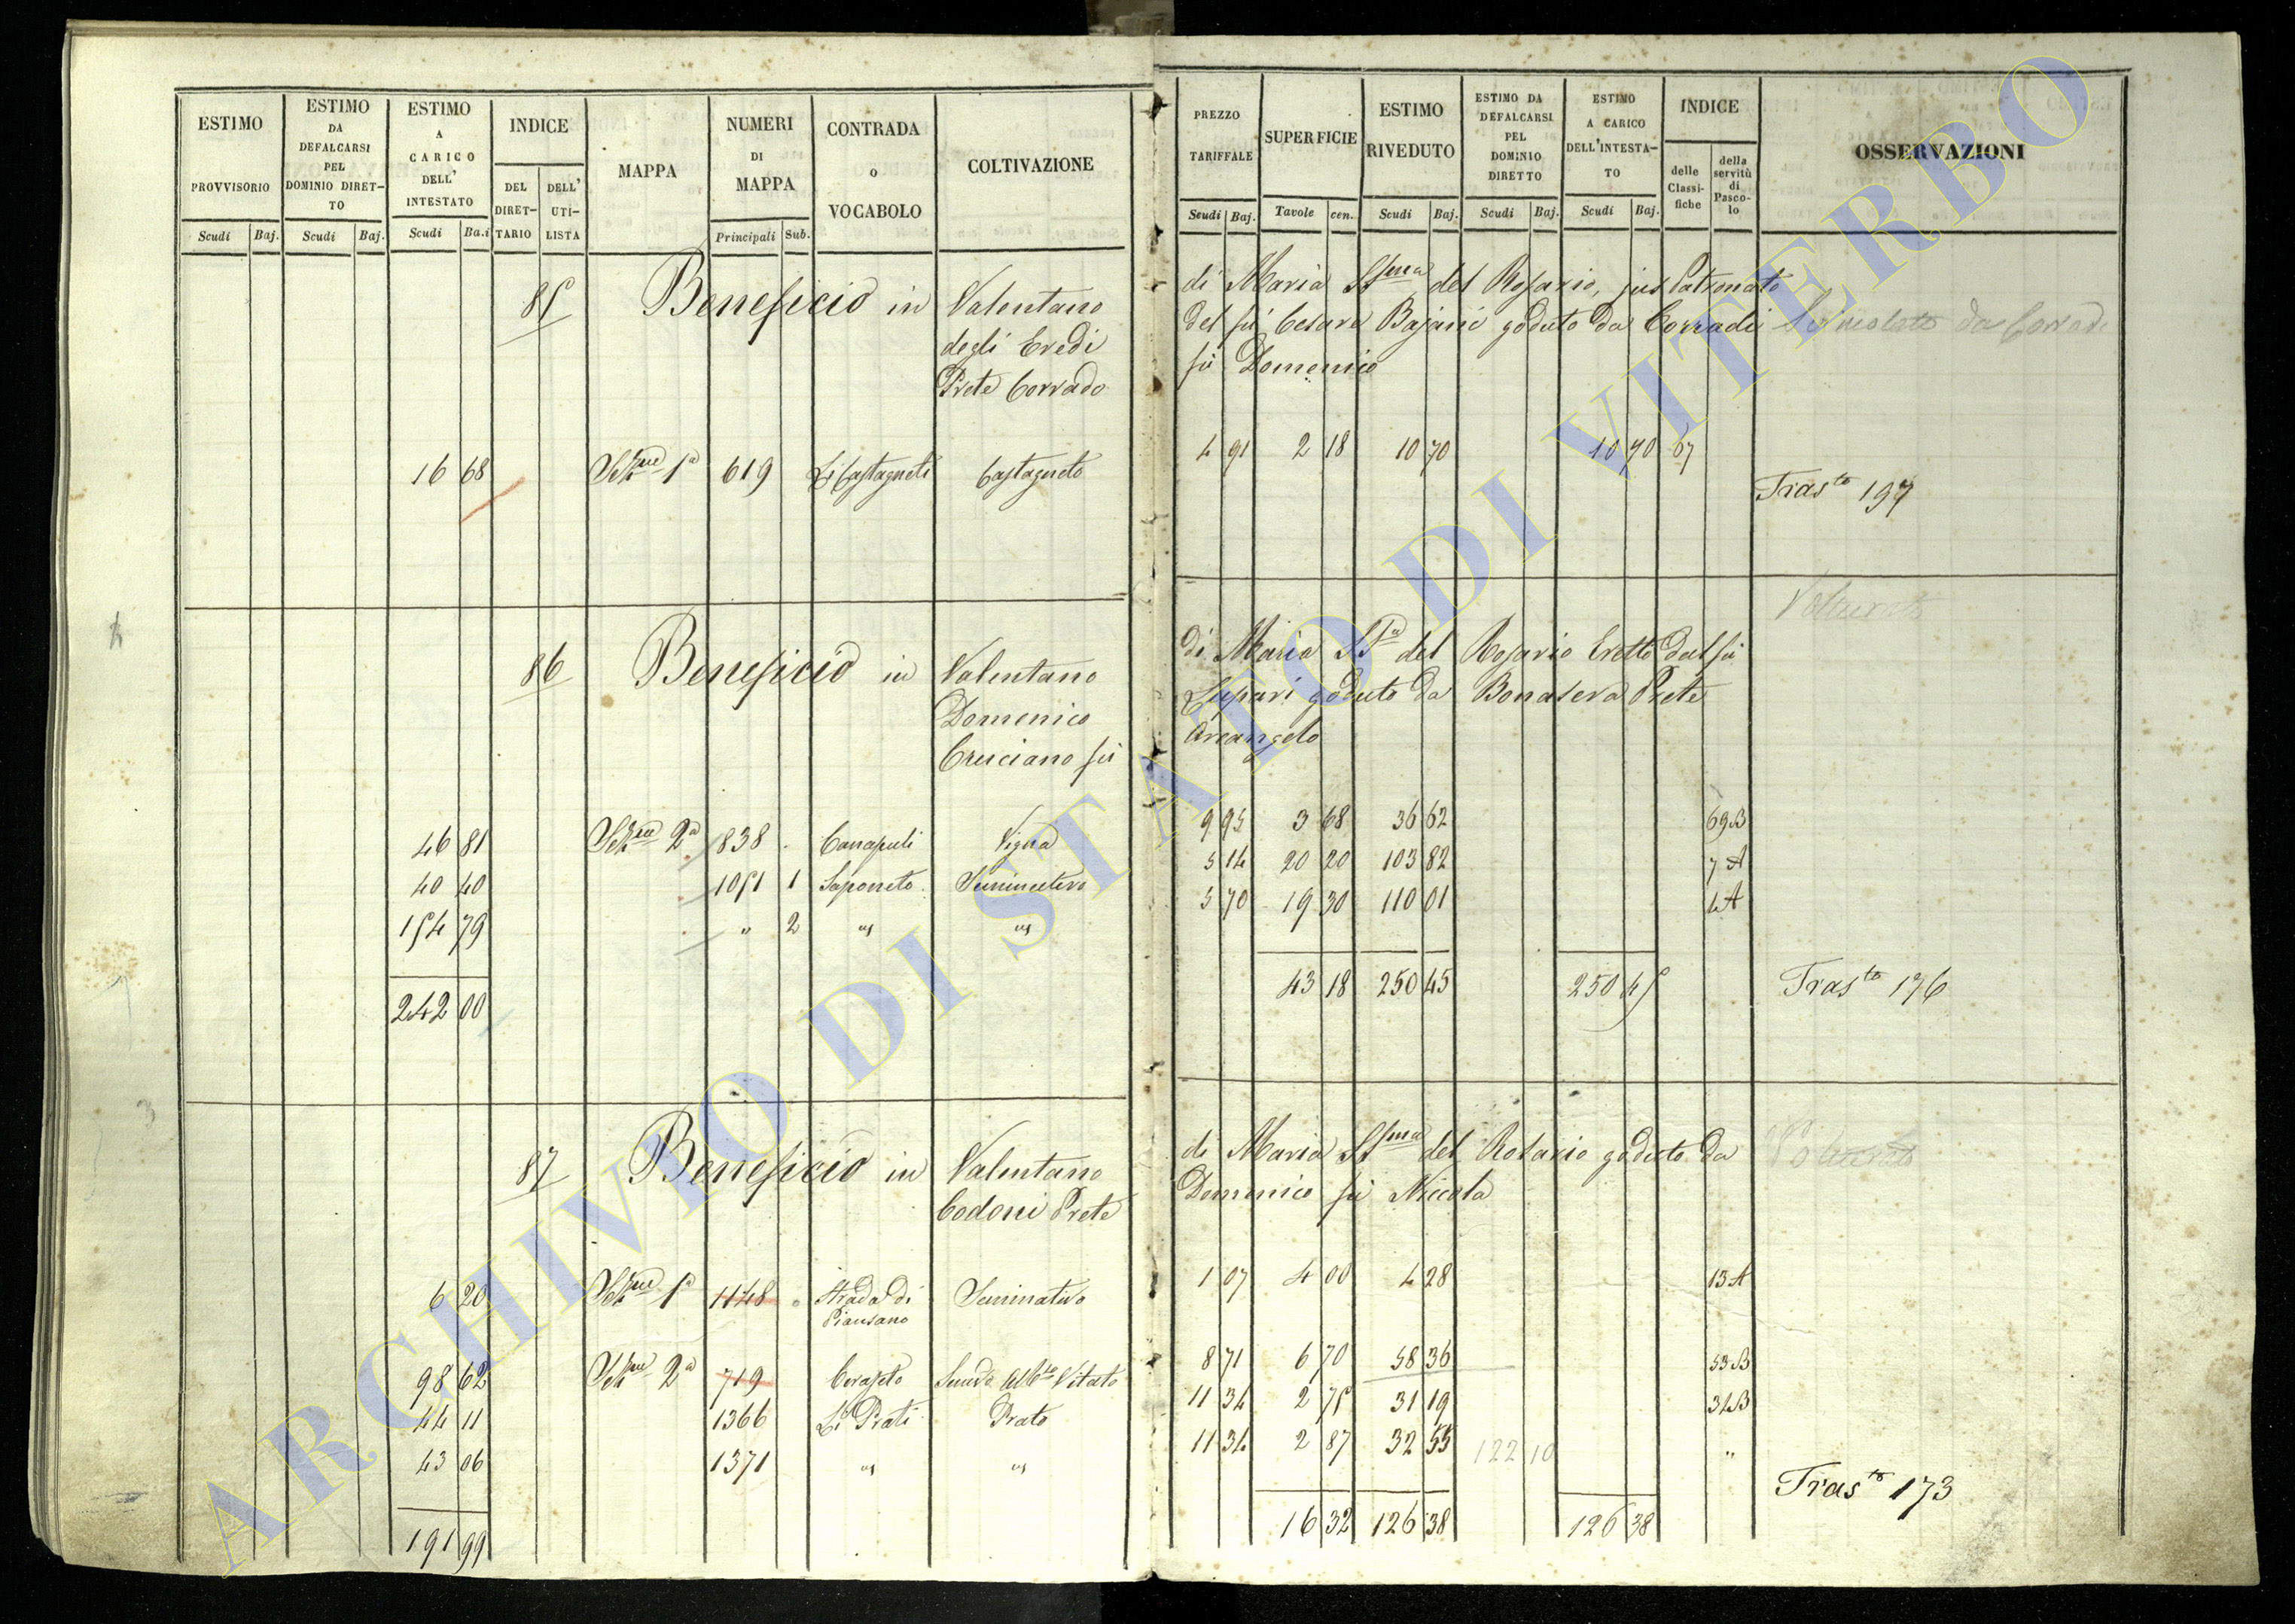 ESTIMO PROVVISORIO Scudi Baj.
ESTIMO DA DEFALCARSI PEL DOMINIO DIRET-TO Scudi Baj.
ESTIMO A CARICO DELL' INTESTATO Scudi Ba.i
INDICE DEL DIRET-TARIO DELL' UTI-LISTA
MAPPA
NUMERI DI MAPPA Principali Sub.
CONTRADA O VOCABOLO
COLTIVAZIONE
PREZZO TARIFFALE Scudi Baj.
SUPERFICIE Tavole cen.
ESTIMO RIVEDUTO Scudi Baj.
ESTIMO DA DEFALCARSI PEL DOMINIO DIRETTO Scudi Baj.
ESTIMO A CARICO DELL'INTESTA-TO Scudi Baj.
INDICE delle Classi-fiche della servitù di Pasco-lo
OSSERVAZIONI
85 Beneficio in Valentano di Maria SSma del Rosario, jus Patronato
degli Eredi del fù Cesare Bajani goduto da Corradi
Prete Corrado fù Domenico
16 68 Sezne 1a 619 Li Castagneti Castagneto 4 91 2 18 10 70 10 70 67
Trasto 197
86 Beneficio in Valentano di Maria SSa del Rosario Eretto dal fù
Domenico Lupari goduto da Bonasera Prete
Cruciano fù Arcangelo
46 81 Sezne 2a 838 Canapuli Vigna 9 95 3 68 36 62 69B
40 40 1051 1 Saponeto Seminativo 5 14 20 20 103 82 7A
154 79 " 2 " " 5 70 19 30 110 01 4A
242 00 43 18 250 45 250 45 Trasto 176
87 Beneficio in Valentano di Maria SSma del Rosario goduto da
Codoni Prete Domenico fù Niccola
6 20 Sezne 1a 1148 Strada di Piansano Seminativo 1 07 4 00 4 28 13A
98 62 Sezne 2a 719 Cerapeto Vitato 8 71 6 70 58 36 53B
44 11 1366 Li Prati Prato 11 34 2 75 31 19 34B
43 06 1371 " " 11 34 2 87 32 55 122 10 "
Trasto 173
191 99 16 32 126 38 126 38
ARCHIVIO DI STATO DI VITERBO